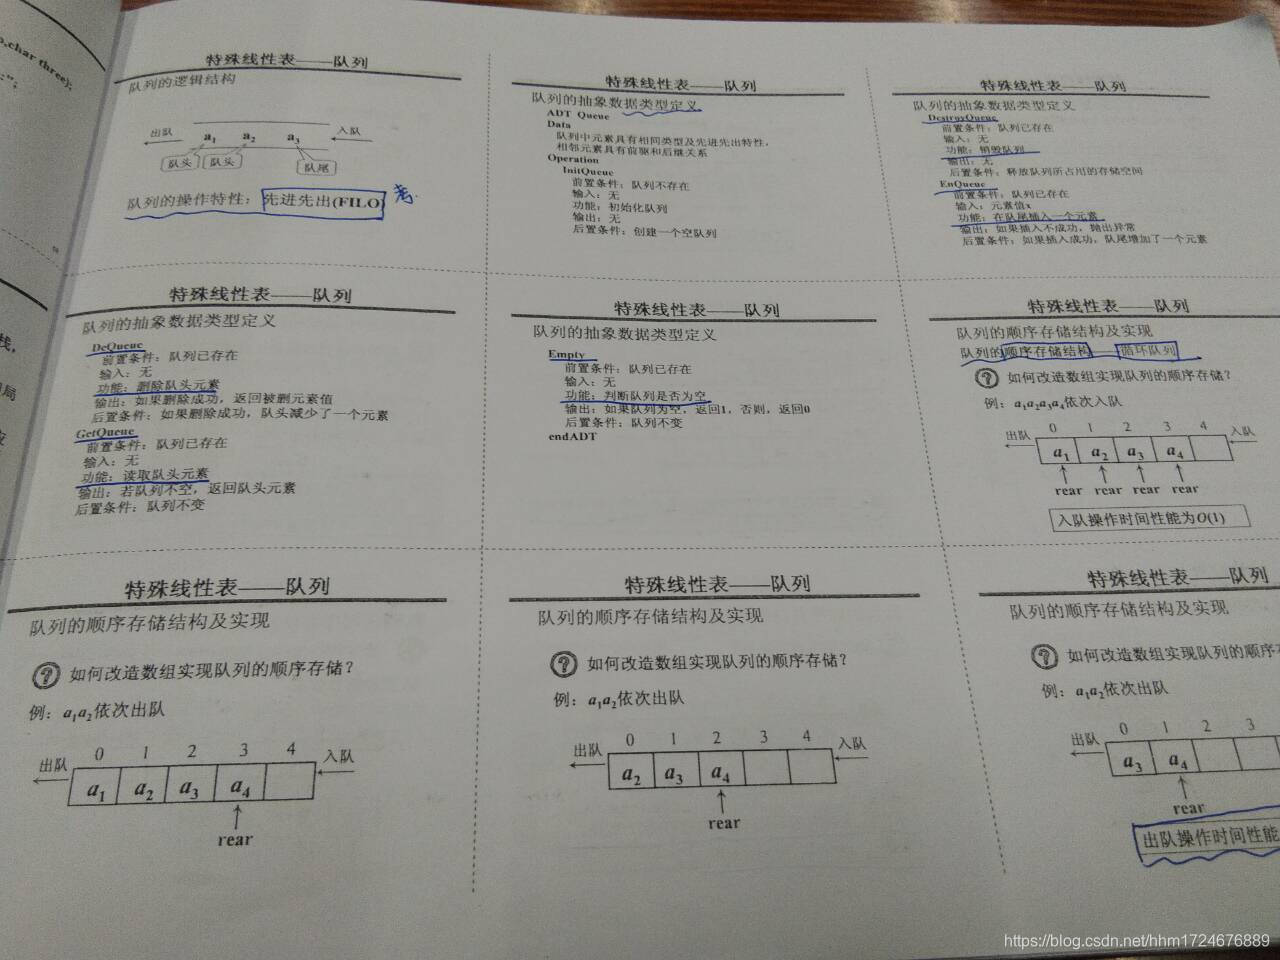 o,char three);
特殊线性表——队列
队列的逻辑结构
出队 a1 a2 a3 入队
队头 队头 队尾
队列的操作特性：先进先出(FILO) 考
特殊线性表——队列
队列的抽象数据类型定义
ADT Queue
Data
队列中元素具有相同类型及先进先出特性，
相邻元素具有前驱和后继关系
Operation
InitQueue
前置条件：队列不存在
输入：无
功能：初始化队列
输出：无
后置条件：创建一个空队列
特殊线性表——队列
队列的抽象数据类型定义
DestroyQueue
前置条件：队列已存在
输入：无
功能：销毁队列
输出：无
后置条件：释放队列所占用的存储空间
EnQueue
前置条件：队列已存在
输入：元素值x
功能：在队尾插入一个元素
输出：如果插入不成功，抛出异常
后置条件：如果插入成功，队尾增加了一个元素
特殊线性表——队列
队列的抽象数据类型定义
DeQueue
前置条件：队列已存在
输入：无
功能：删除队头元素
输出：如果删除成功，返回被删元素值
后置条件：如果删除成功，队头减少了一个元素
GetQueue
前置条件：队列已存在
输入：无
功能：读取队头元素
输出：若队列不空，返回队头元素
后置条件：队列不变
特殊线性表——队列
队列的抽象数据类型定义
Empty
前置条件：队列已存在
输入：无
功能：判断队列是否为空
输出：如果队列为空，返回1，否则，返回0
后置条件：队列不变
endADT
特殊线性表——队列
队列的顺序存储结构及实现
队列的顺序存储结构——循环队列
? 如何改造数组实现队列的顺序存储？
例：a1a2a3a4依次入队
0 1 2 3 4
出队 a1 a2 a3 a4 入队
rear rear rear rear
入队操作时间性能为O(1)
特殊线性表——队列
队列的顺序存储结构及实现
? 如何改造数组实现队列的顺序存储？
例：a1a2依次出队
0 1 2 3 4
出队 a1 a2 a3 a4 入队
rear
特殊线性表——队列
队列的顺序存储结构及实现
? 如何改造数组实现队列的顺序存储？
例：a1a2依次出队
0 1 2 3 4
出队 a2 a3 a4 入队
rear
特殊线性表——队列
队列的顺序存储结构及实现
? 如何改造数组实现队列的顺序存
例：a1a2依次出队
0 1 2 3
出队 a3 a4
rear
出队操作时间性能
https://blog.csdn.net/hhm1724676889